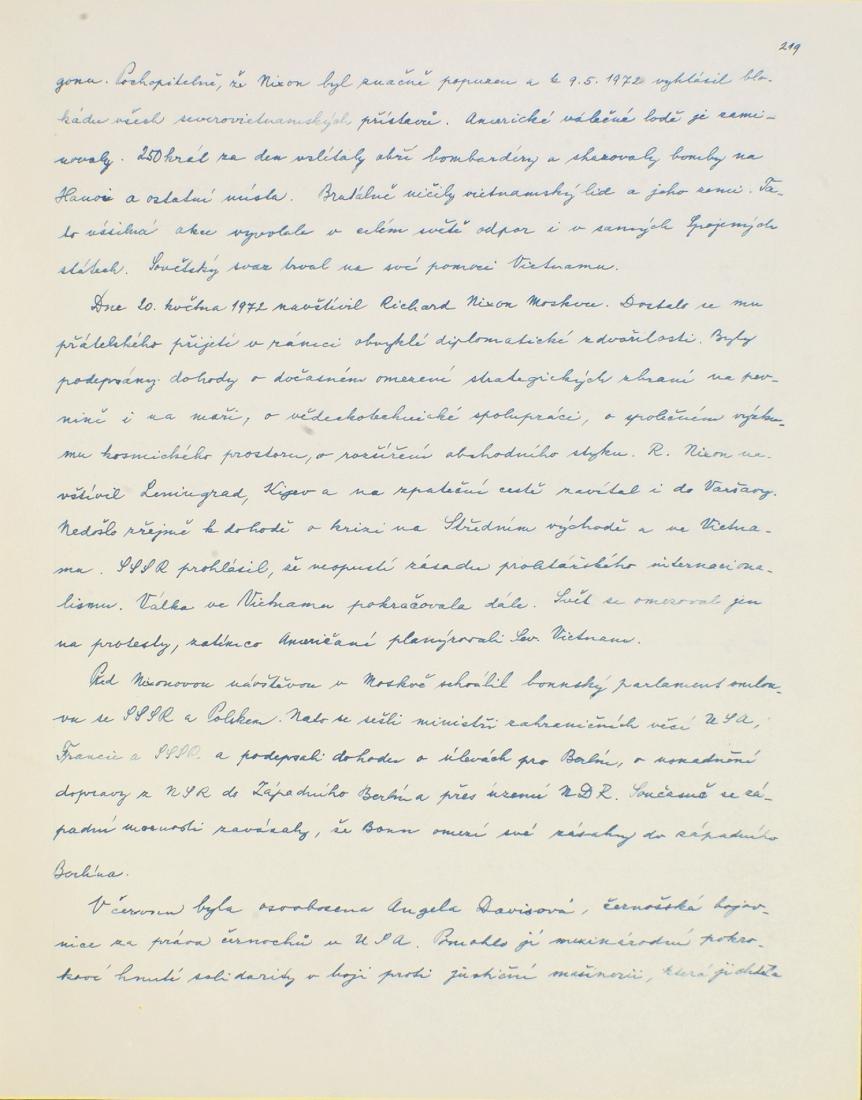 219
gonu. Pochopitelně, že Nixon byl značně popuzen a 9.5.1972 vyhlásil blo-
kádu všech severovietnamských přístavů. Americké válečné lodě je zami-
novaly. 250krát za den vzlétaly obří bombardéry a shazovaly bomby na
Hanoi a ostatní města. Brutálně ničily vietnamský lid a jeho zemi. Ta-
to akce vyvolala v celém světě odpor i v samých Spojených
státech. Sovětský svaz trval na své pomoci Vietnamu.
Dne 20. května 1972 navštívil Richard Nixon Moskvu. Dostalo se mu
přátelského přijetí v rámci obvyklé diplomatické zdvořilosti. Byly
podepsány dohody o dočasném omezení strategických zbraní na pev-
nině i na moři, o vědeckotechnické spolupráci, o společném výzku-
mu kosmického prostoru, o rozšíření obchodního styku. R. Nixon na-
vštívil Leningrad, Kijev a na zpáteční cestě zavítal i do Varšavy.
Nedošlo zřejmě k dohodě o krizi na Středním východě a ve Vietna-
mu. SSSR prohlásil, že neopustí zásadu proletářského internaciona-
lismu. Válka ve Vietnamu pokračovala dále. Svět se omezoval jen
na protesty, zatímco Američané planýrovali Sev. Vietnam.
Před Nixonovou návštěvou v Moskvě schválil bonnský parlament smlou-
vu se SSSR a Polskem. Nato se sešli ministři zahraničních věcí USA,
Francie a SSSR a podepsali dohodu o úlevách pro Berlín, o usnadnění
dopravy z NSR do Západního Berlína přes území NDR. Současně se zá-
padní mocnosti zavázaly, že Bonn omezí své zásahy do západního
Berlína.
V červnu byla osvobozena Angela Davisová, černošská bojov-
nice za práva černochů v USA. Pomohlo jí mezinárodní pokro-
kové hnutí solidarity v boji proti justiční mašinerii, která ji chtěla